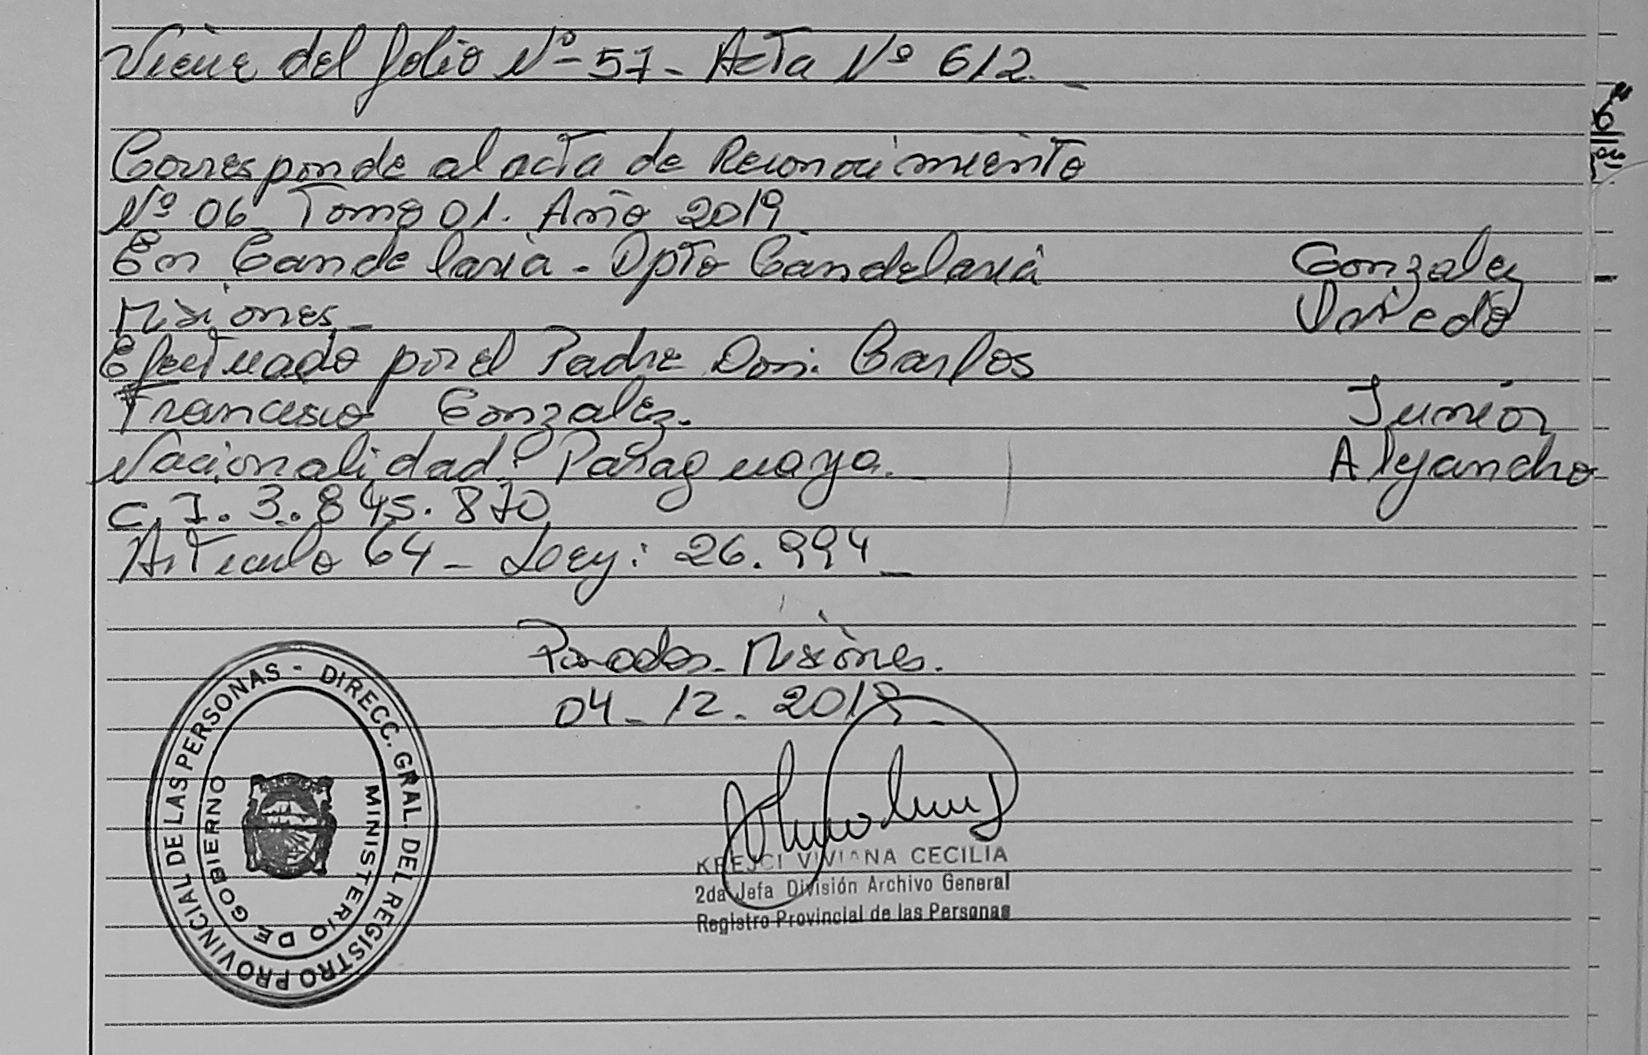 Viene del folio Nº-57- Acta Nº 612.-
Corresponde al acta de Reconocimiento
Nº 06 Tomo 01. Año 2019
En Candelaria - Dpto Candelaria
Misiones-
Efectuado por el Padre Don: Carlos
Francisco Gonzalez.
Nacionalidad: Paraguaya.
C.I. 3.845.870
Articulo 64 - Ley: 26.994-
Gonzalez
Oviedo
Junior
Alejandro
Posadas- Misiones.
04-12-2019-
KREJCI VIVIANA CECILIA
2da Jefa División Archivo General
Registro Provincial de las Personas
DIRECC. GRAL. DEL REGISTRO PROVINCIAL DE LAS PERSONAS -
MINISTERIO DE GOBIERNO